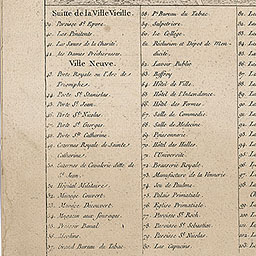 Suitte de la Ville Vieille.
39. Paroisse St. Epvre.
40. Les Pénitents.
41. Les Sœurs de la Charité.
42. les Dames Prêcheresses.
Ville Neuve.
43. Porte Royale ou l'Arc de
Triomphe.
44. Porte St. Stanislas
45. Porte St. Jean.
46. Porte St. Nicolas
47. Porte St. Georges
48. Porte Ste. Catherine
49. Cazernes Royale de Sainte
Catherine.
50. Cazerne de Cavalerie ditte de
St. Jean.
51. Hôpital Militaire.
52. Manège Couvert.
53. Manège Découvert.
54. Magasin aux fourages.
55. Pressoir Banal.
56. Abreuvoir.
57. Grand Bureau du Tabac.
58. Pt. Bureau du Tabac
59. Salpetriere.
60. Le Collège.
61. Réclusion et Dépot de Men-
dicité.
62. Lavoir Public
63. Beffroy
64. Hôtel de Ville.
65. Hôtel de l'Intendance.
66. Hôtel des Fermes.
67. Salle de Comédie.
68. Salle de Médecine
69. Poissonnerie.
70. Hôtel des Halles.
71. l'Université.
72. Brasserie Royale.
73. Manufacture de la Vennerie
74. Jeu de Paulme
75. Palais Primatiale.
76. Eglise Primatiale.
77. Paroisse St. Roch.
78. Paroisse St. Sébastien.
79. Paroisse St. Nicolas.
80. Les Capucins